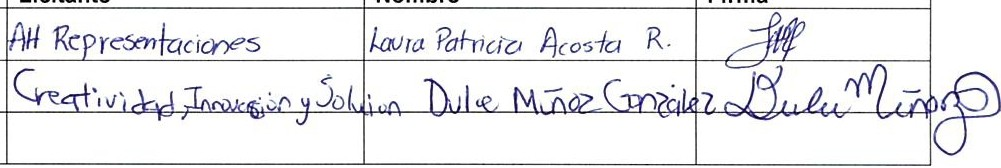 Licitante Nombre Firma
AH Representaciones Laura Patricia Acosta R.
Creatividad, Innovación y Solution Dulce Muñoz González Dulce Muñoz